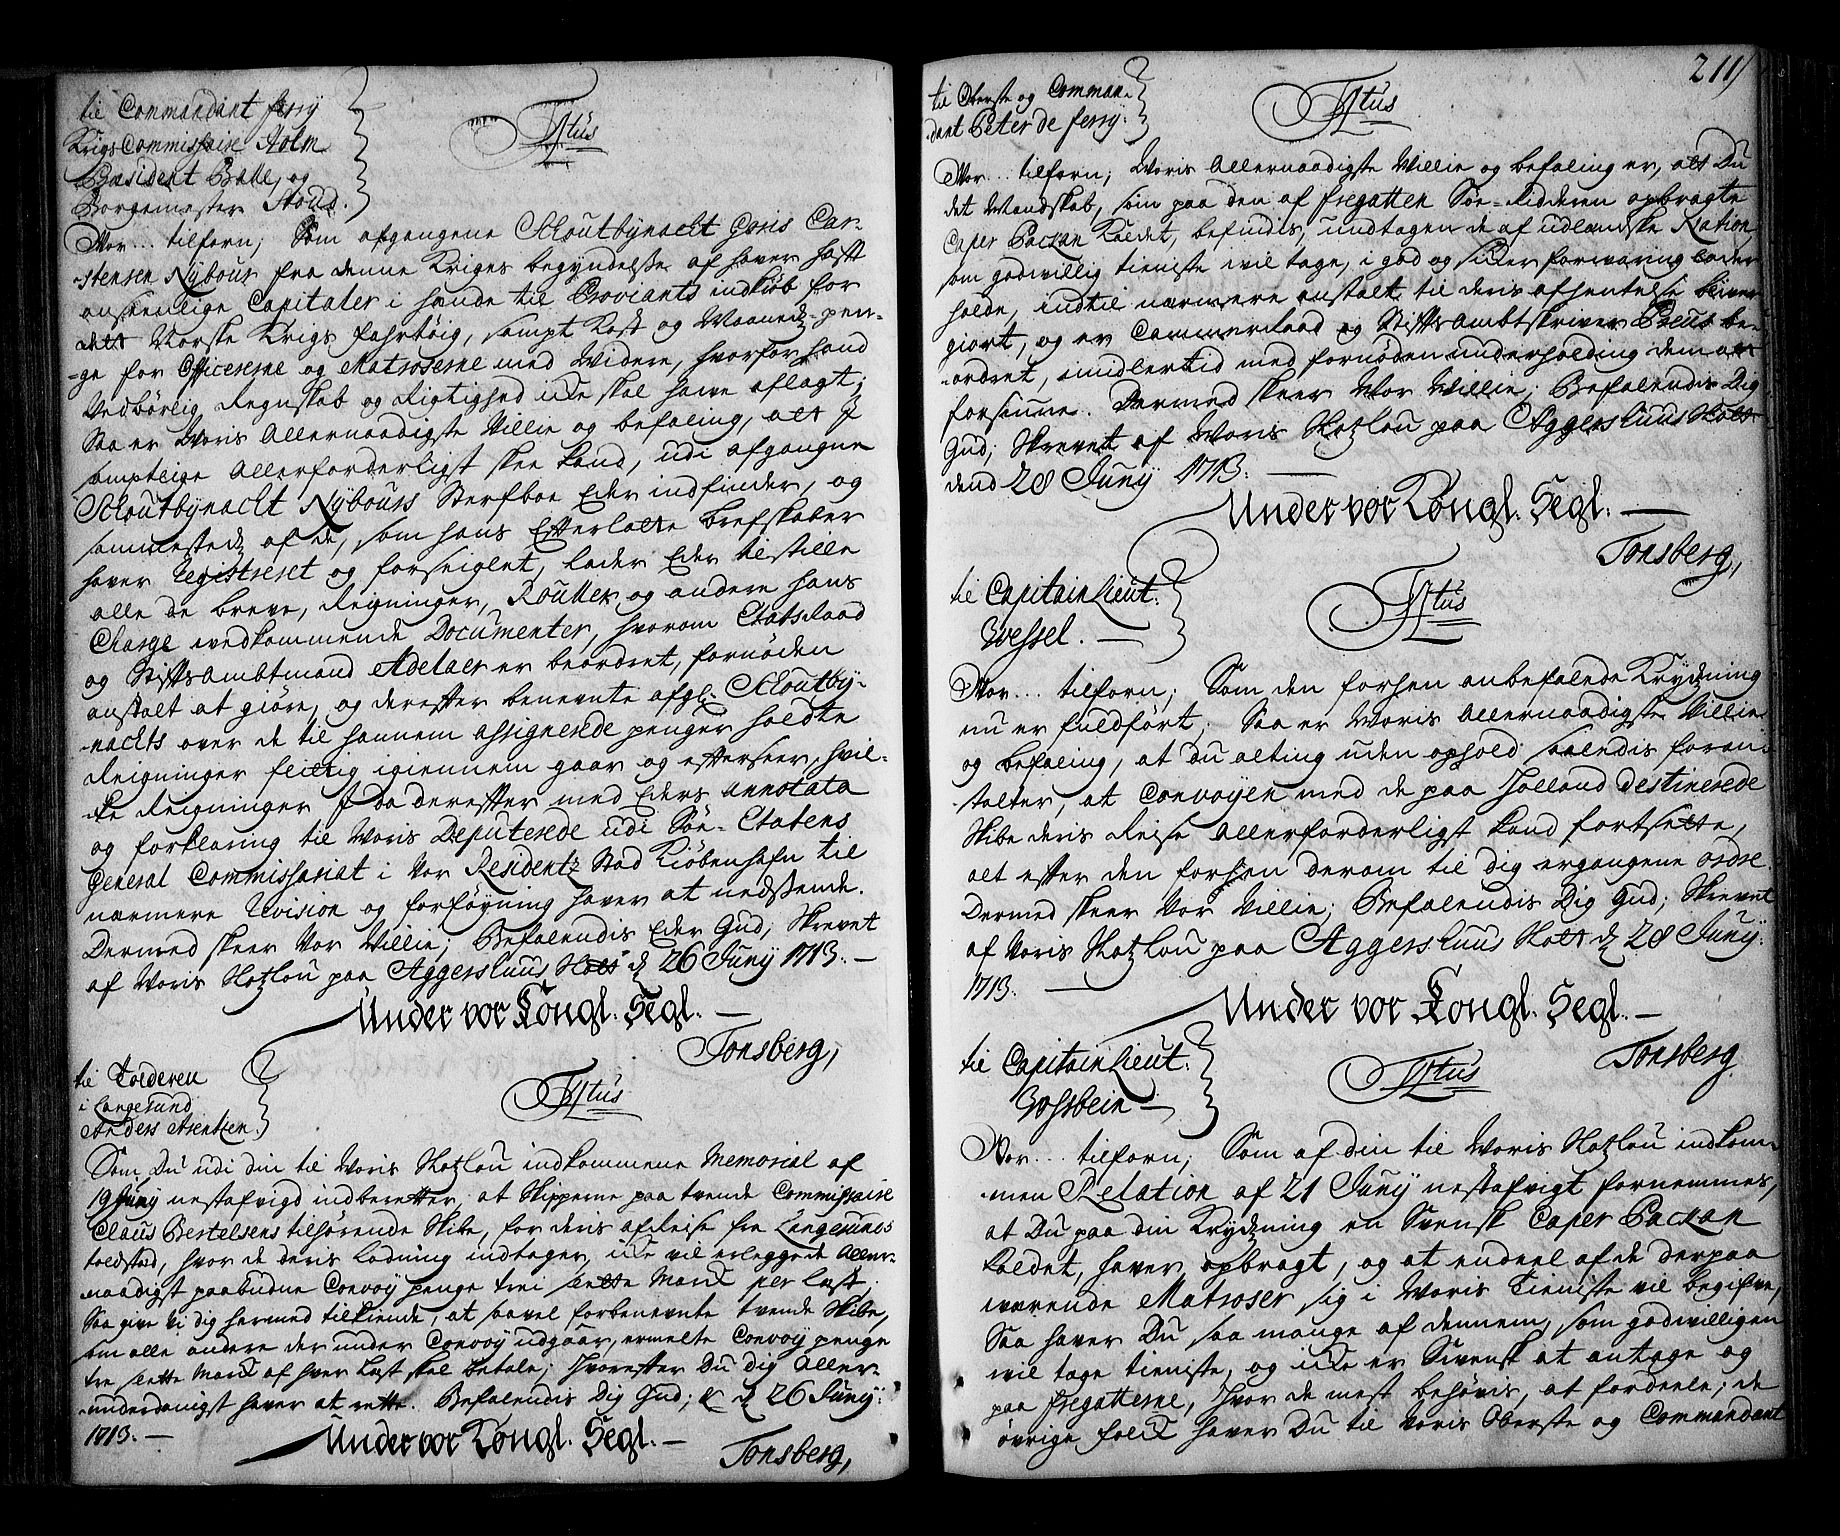 til Commandant ferry
Krigs Commissaire Holm
Præsident Balle, og
Borgemester Stoud.
Titus
Vor... tilforn; Som afgangene Schoutbynacht Joris Car-
-stensen Nybour fra denne Kriges begyndelse af haver hafft
anseenlige Capitaler i hænde til Proviants indkiøb for
dett Norske Krigs fahrtøig, sampt Kost og Maanedz-pen-
-ge for Officererne og Matroserne med Videre, hvorfor hand
Vedbørlig Regnskab og Rigtighed icke skal have aflagt;
Saa er Voris Allernaadigste Villie og befaling, att I
samptlige Allerforderligst skee kand, udi afgangne
Schoutbynacht Nybours Sterfboe Eder indfinder, og
sammestedz af de, som hans Efterlatte brefskaber
haver Registreret og forseiglet, lader Eder tilstille
alle de breve, Reigninger, Roller og andere hans
Charge wedkommende Documenter, hvorom EtatsRaad
og Stiftsambtmand Adelaer er beordret, fornøden
anstalt at giøre, og derefter benevnte afgl. Schoutby-
-nachts over de til hannem assignerede penger holdte
Reigninger fliitig igiennem gaar og efterseer, hvil-
-ke Reigninger I da derefter med Eders annotata
og forklaring til Voris Deputerede udi Søe-Etatens
General Commissariat i Vor Residentz Stad Kiøbenhafn til
nærmere Revision og forføyning haver at nedsende.
Dermed skeer Vor Villie; Befalendis Eder Gud; Skrevet
af Voris Slotzlou paa Aggershuus Slott dz 26 Junÿ 1713. —
Under vor Kongl. Segl. —
Tonsberg,
til Tolderen
i Langesund
Anders Arentzen.
Titus
Som Du udi din til Voris Slotzlou indkommene Memorial af
19 Junÿ nestafvigd indberetter, at Skipperne paa tvende Commissaire
Claus Bertelsens tilhørende Skibe, for deris afReise fra Langesunds
toldsted, hvor de deris Ladning indtager, icke vil erlegge de Aller-
naadigst paabudne Convoy penge trei slette Marck per Lest
Saa give Vi dig hermed tilkiende, at saavel forbenevnte tvende Skibe,
som alle andere der under Convoy udgaar, ermelte Convoy penge
tre slette Marck af hver Lest skal betale; Hvorefter Du dig Aller-
-underdanigst haver at rette. Befalendis Dig Gud; dz 26 Junÿ:
1713. —
Under vor Kongl. Segl. —
Tonsberg,
211
til Oberste og Comman-
dant Peter de ferry.
Titus
Vor... tilforn; Voris Allernaadigste Villie og befaling er, att Du
det Mandskab, som paa den af fregatten Søe-Ridderen opbragte
Caper Packan Kaldet, befindis, undtagen de af udlandske Nation
som godwillig tieniste wil tage, i god og sicker forwaring lader
holde, indtil nærmere anstalt til deris afhentelse bliver
giort, og er Cammerraad og Stiftsambtskriver Preus be-
-ordret, imidlertid med fornøden underholding dem at
forsiune. Dermed skeer Vor Villie; Befalendis Dig
Gud; Skrevet af Voris Slotzlou paa Aggershuus Slott
dend 28 Junÿ 1713. —
Under vor Kongl. Segl. —
Tonsberg,
til Capitain Lieut:
Wessel. —
Titus
Vor... tilforn; Som den forhen anbefalede Krydzning
nu er fuldført; Saa er Voris Allernaadigste Villie
og befaling, at Du alting uden ophold saaledis foran-
stalter, at Convoyen med de paa Holland destinerede
Skibe deris Reise Allerforderligst kand fortsette,
alt efter den forhen derom til dig ergangene ordre.
Dermed skeer Vor Villie; Befalendis Dig Gud; Skrevet
af Voris Slotzlou paa Aggershuus Slott dz 28 Junÿ:
1713. —
Under vor Kongl. Segl. —
Tonsberg.
til Capitain Lieut:
Vosbein —
Titus
Vor... tilforn; Som af din til Voris Slotzlou indkom-
-men Relation af 21 Junÿ nestafvigt fornemmes,
at Du paa din Krydzning en Svensk Caper Packan
kaldet, haver opbragt, og at endeel af de derpaa
værende Matroser sig i Voris Tieniste vil begifve,
Saa haver Du saa mange af dennem, som godwilligen
wil tage tieniste, og icke er Svensk at antage og
paa fregatterne, hvor de mest behøvis, at fordeele; de
øvrige folck haver Du til Voris Oberste og Commandant